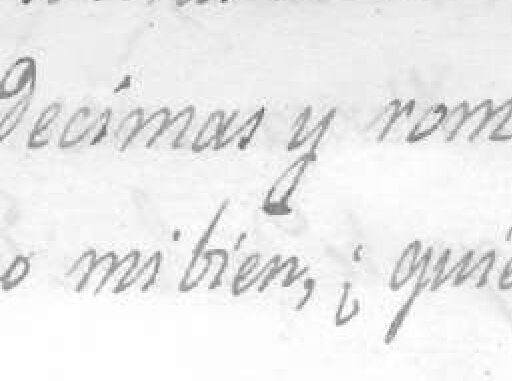 Decimas y rom
o mi bien, ¿ quie